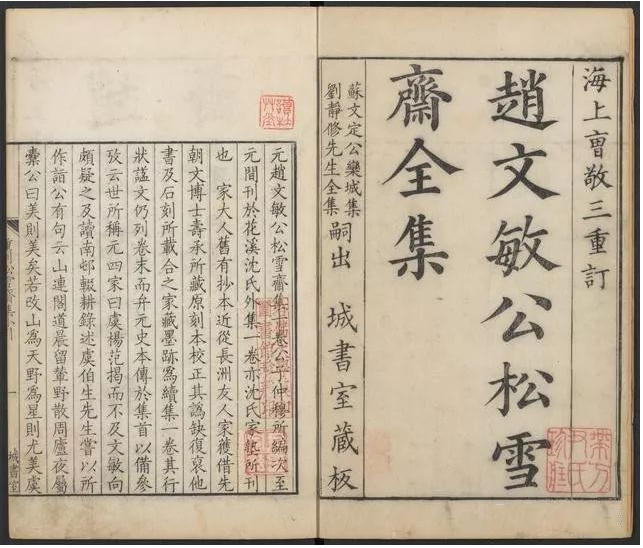 海上曺敬三重訂
趙文敏公松雪
齋全集
蘇文定公欒城集
劉靜修先生全集
嗣出 城書室藏板
元趙文敏公松雪齋集十卷公子仲穆所編次至
元間刊於花溪沈氏外集一卷亦沈氏家塾所刊
也 家大人舊有抄本近從長洲友人家獲借先
朝文博士壽承所藏原刻本校正其譌缺復裒他
書及石刻所載合之家藏墨跡爲續集一卷其行
狀謚文仍列卷末而弁元史本傳於集首以備參
攷云世所稱元四家曰虞楊范揭而不及文敏向
頗疑之及讀南邨輟耕錄述虞伯生先生嘗以所
作詣公有句云山連閣道晨留輦野散周廬夜屬
櫜公曰美則美矣若改山爲天野爲星則尤美虞
一
城書室